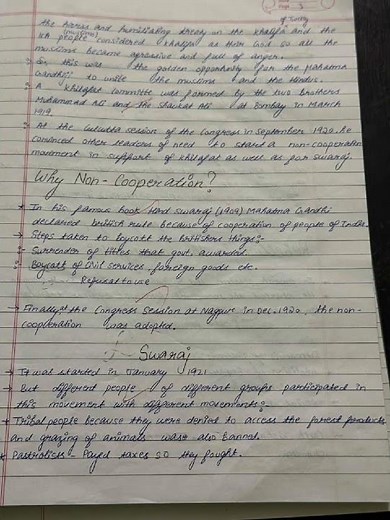 of Turkey
the harsh and humiliating treaty on the khalifa and the
(muslims)
ka people considered khalifa as their God so all the
muslims became agressive and full of anger.
→ In this was the golden oppurtunity for the Mahatma
Gandhiji to unite the muslims and the Hindus.
→ A khilafat committe was formed by the two brothers
Muhammad Ali and the Shaukat Ali at Bombay in March
1919.
→ At the Calcutta session of the Congress in September 1920, he
convinced other leaders of need to start a non-cooperation
movement in support of khilafat as well as for swaraj.
Why Non-Cooperation?
* In his famous book Hind swaraj (1909) Mahatma Gandhi
declared british rule because of cooperation of people of India.
→ Steps taken to boycott the Britishers things:-
:- Surrender of titles that govt. awarded.
:- Boycott of civil services, foreign goods etc.
Refusal to use
→ Finally at the Congress Session at Nagpur in Dec. 1920, the non-
cooperation was adopted.
Swaraj
→ It was started in January 1921
→ But different people of different groups participated in
this movement with different movements:-
* Tribal people because they were denied to access the forest products
and grazing of animals was also banned.
* Pastrolists - Payed taxes so they fought.